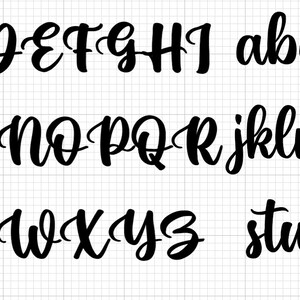 DEFGHI abc
NOPQR jkl
WXYZ stu